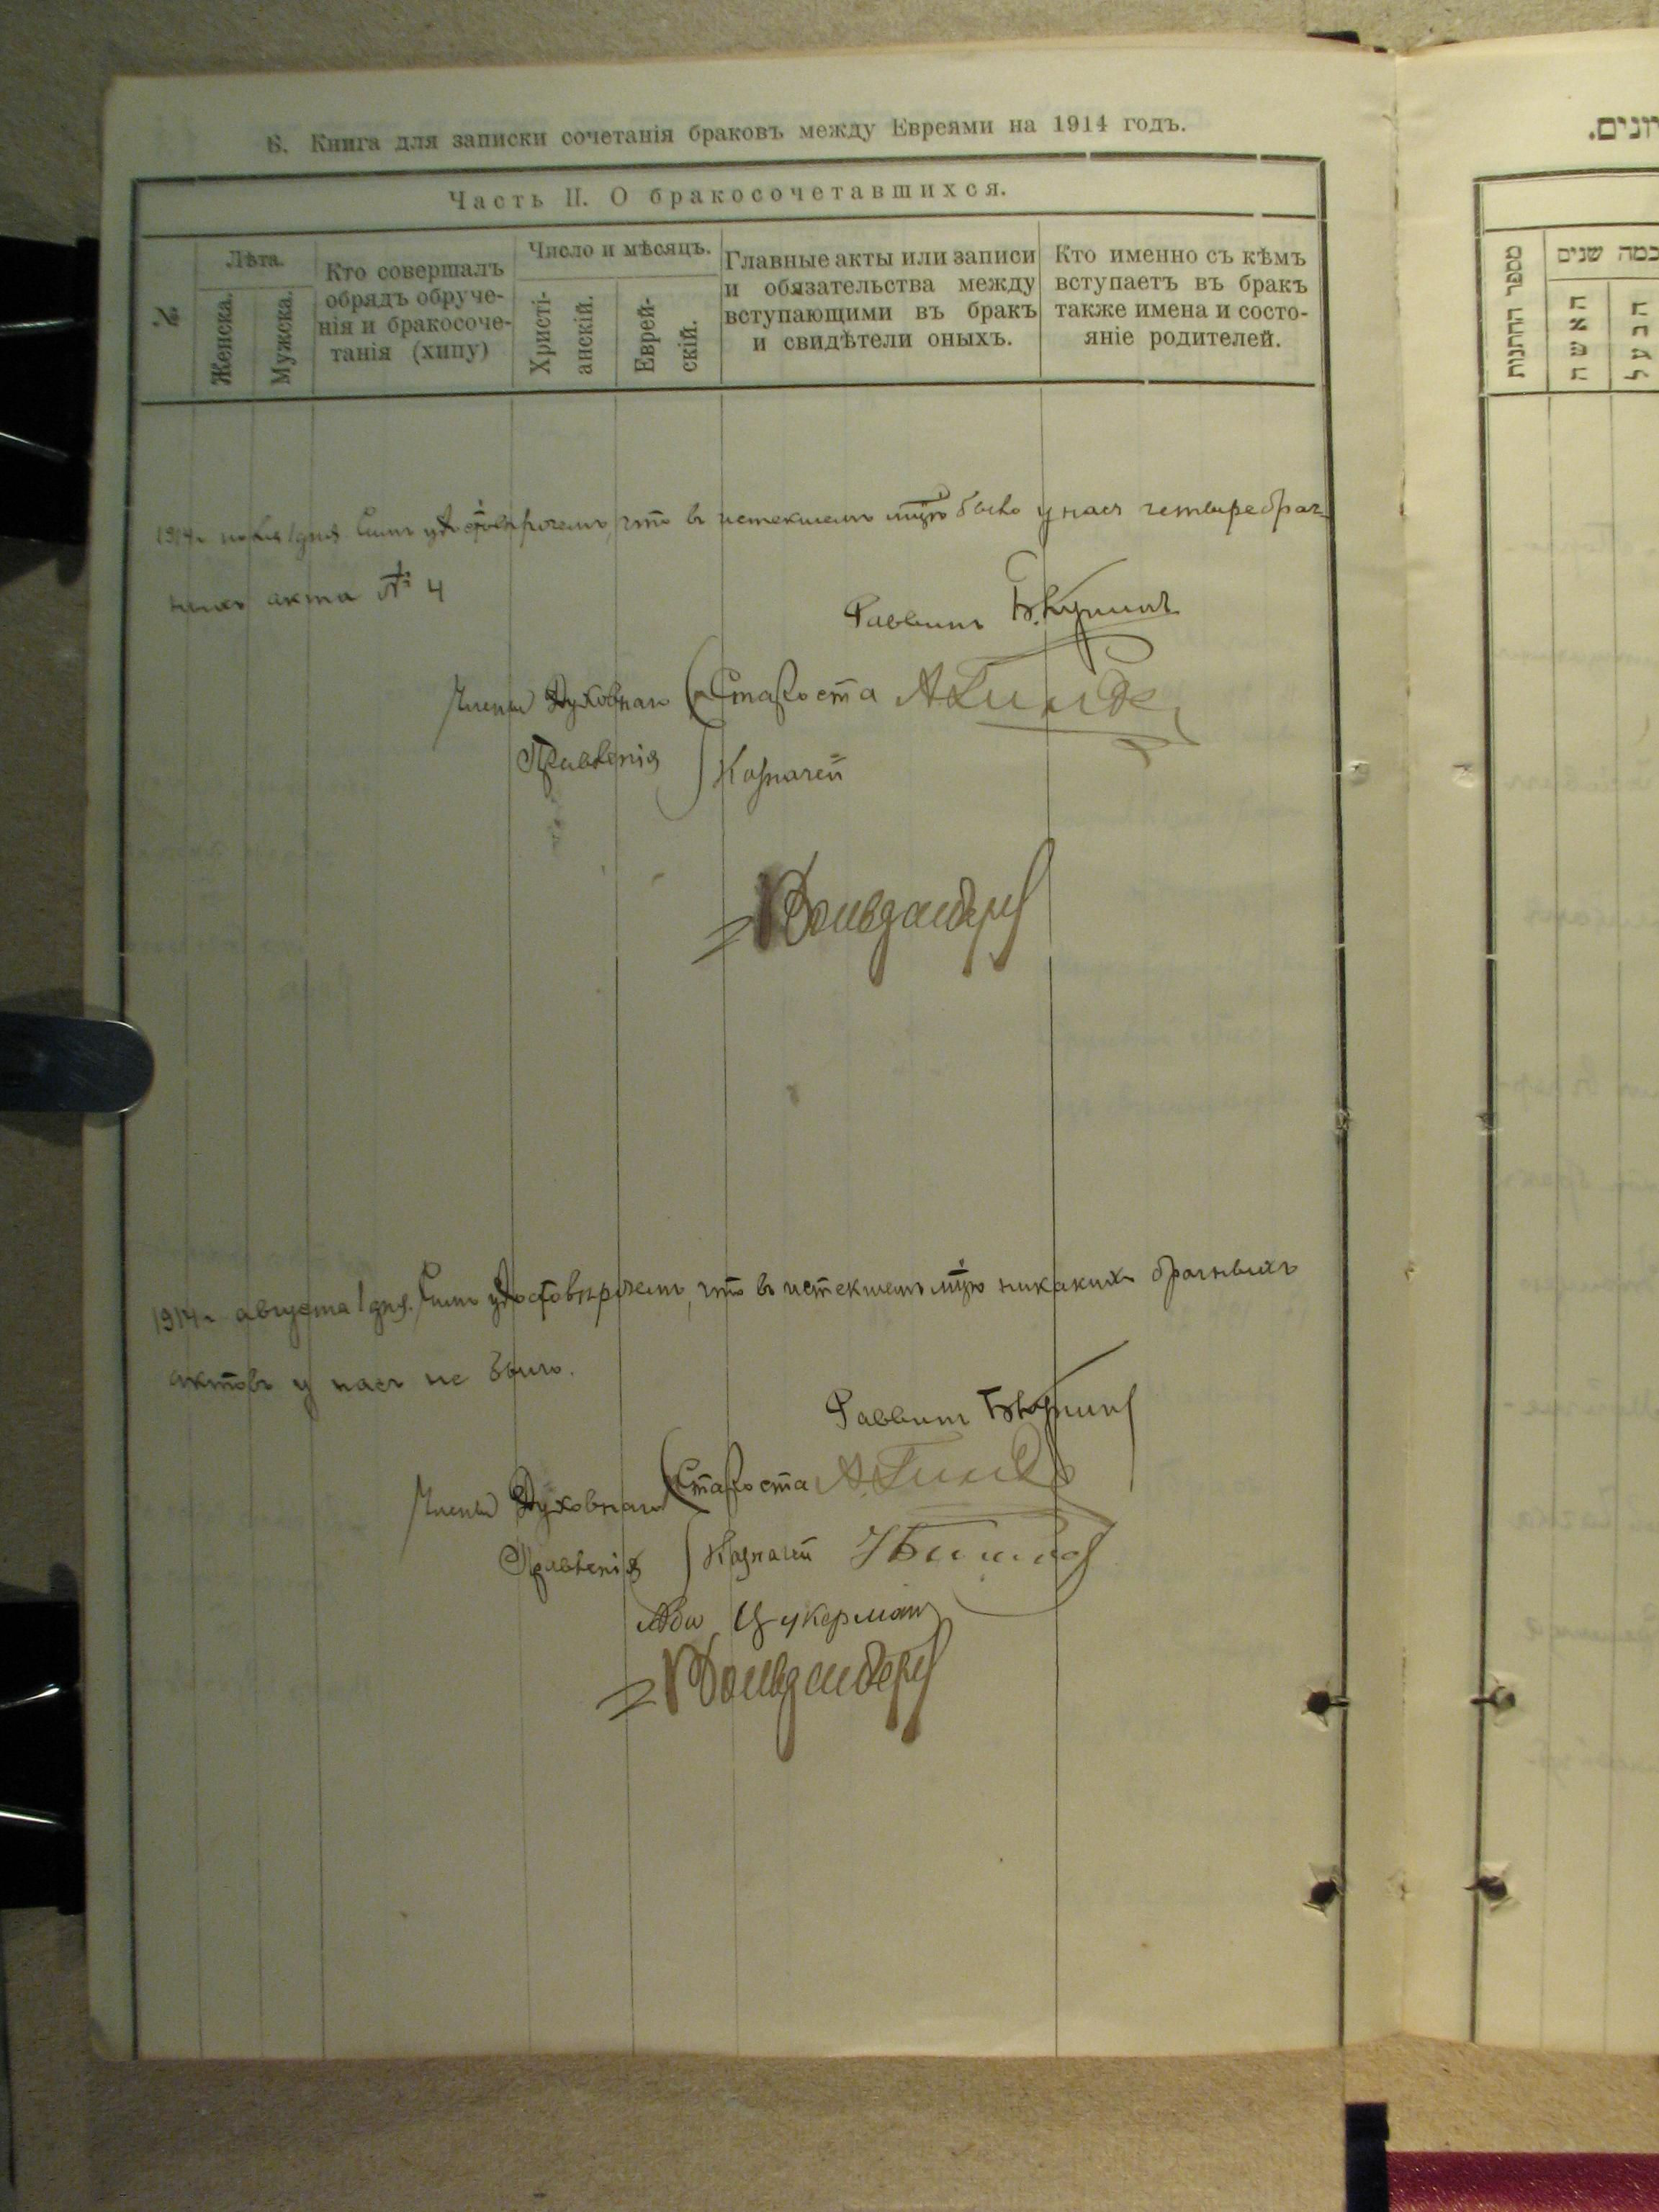 Б. Книга для записки сочетанія браковъ между Евреями на 1914 годъ.
Часть II. О бракосочетавшихся.
№.
Лѣта.
Женска.
Мужска.
Кто совершалъ
обрядъ обруче-
нія и бракосоче-
танія (хипу)
Число и мѣсяцъ.
Христі-
анскій.
Еврей-
скій.
Главные акты или записи
и обязательства между
вступающими въ бракъ
и свидѣтели оныхъ.
Кто именно съ кѣмъ
вступаетъ въ бракъ
также имена и состо-
яніе родителей.
1914 г. іюля 1 дня. Симъ удостовѣряемъ, что въ истекшемъ мцѣ было у насъ четыре брач-
ныхъ акта № 4
Раввинъ
Члены Духовнаго
Правленія
Староста
Казначей
1914 г. августа 1 дня. Симъ удостовѣряемъ, что въ истекшемъ мцѣ никакихъ брачныхъ
актовъ у насъ не было.
Раввинъ
Члены Духовнаго
Правленія
Староста
Казначей
Цукерман
מספר החתנות
כמה שנים
האשה
הבעל